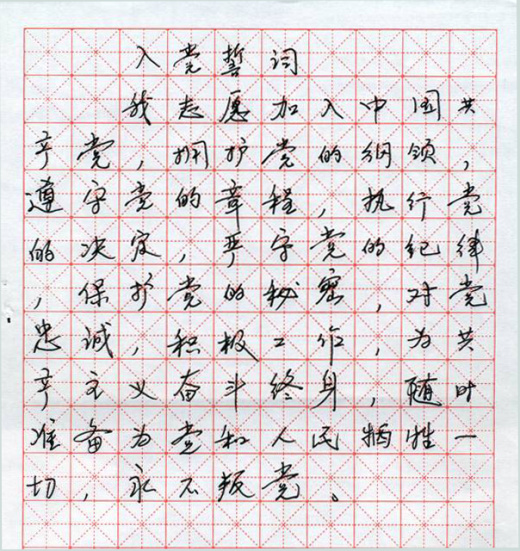 入党誓词
我志愿加入中国共
产党，拥护党的纲领，
遵守党的章程，执行党
的决定，严守党的纪律
，保护党的秘密，对党
忠诚，积极工作，为共
产主义奋斗终身，随时
准备为党和人民牺牲一
切，永不叛党。